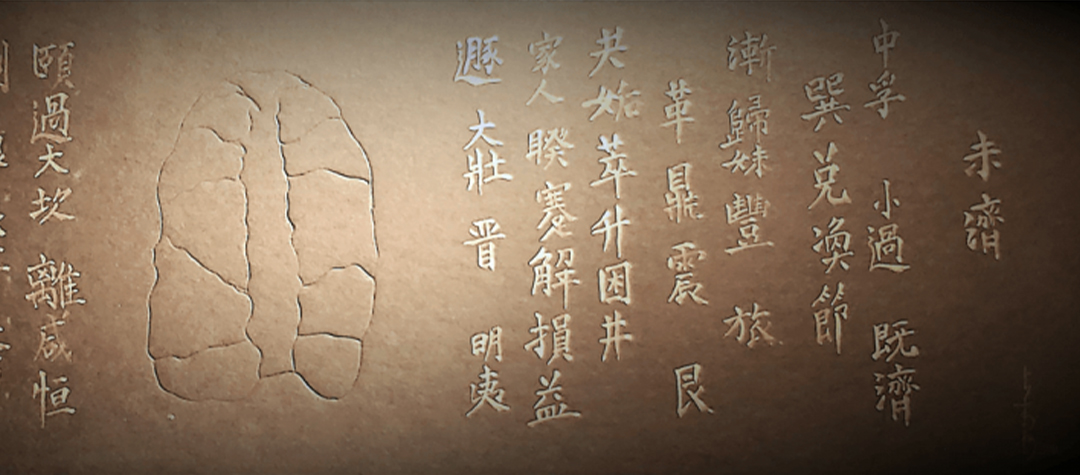 頤過大坎離咸恒
遯大壯晋明夷
家人睽蹇解損益
共姤萃升困井
革鼎震艮
漸歸妹豐旅
巽兌渙節
中孚小過既濟
未濟